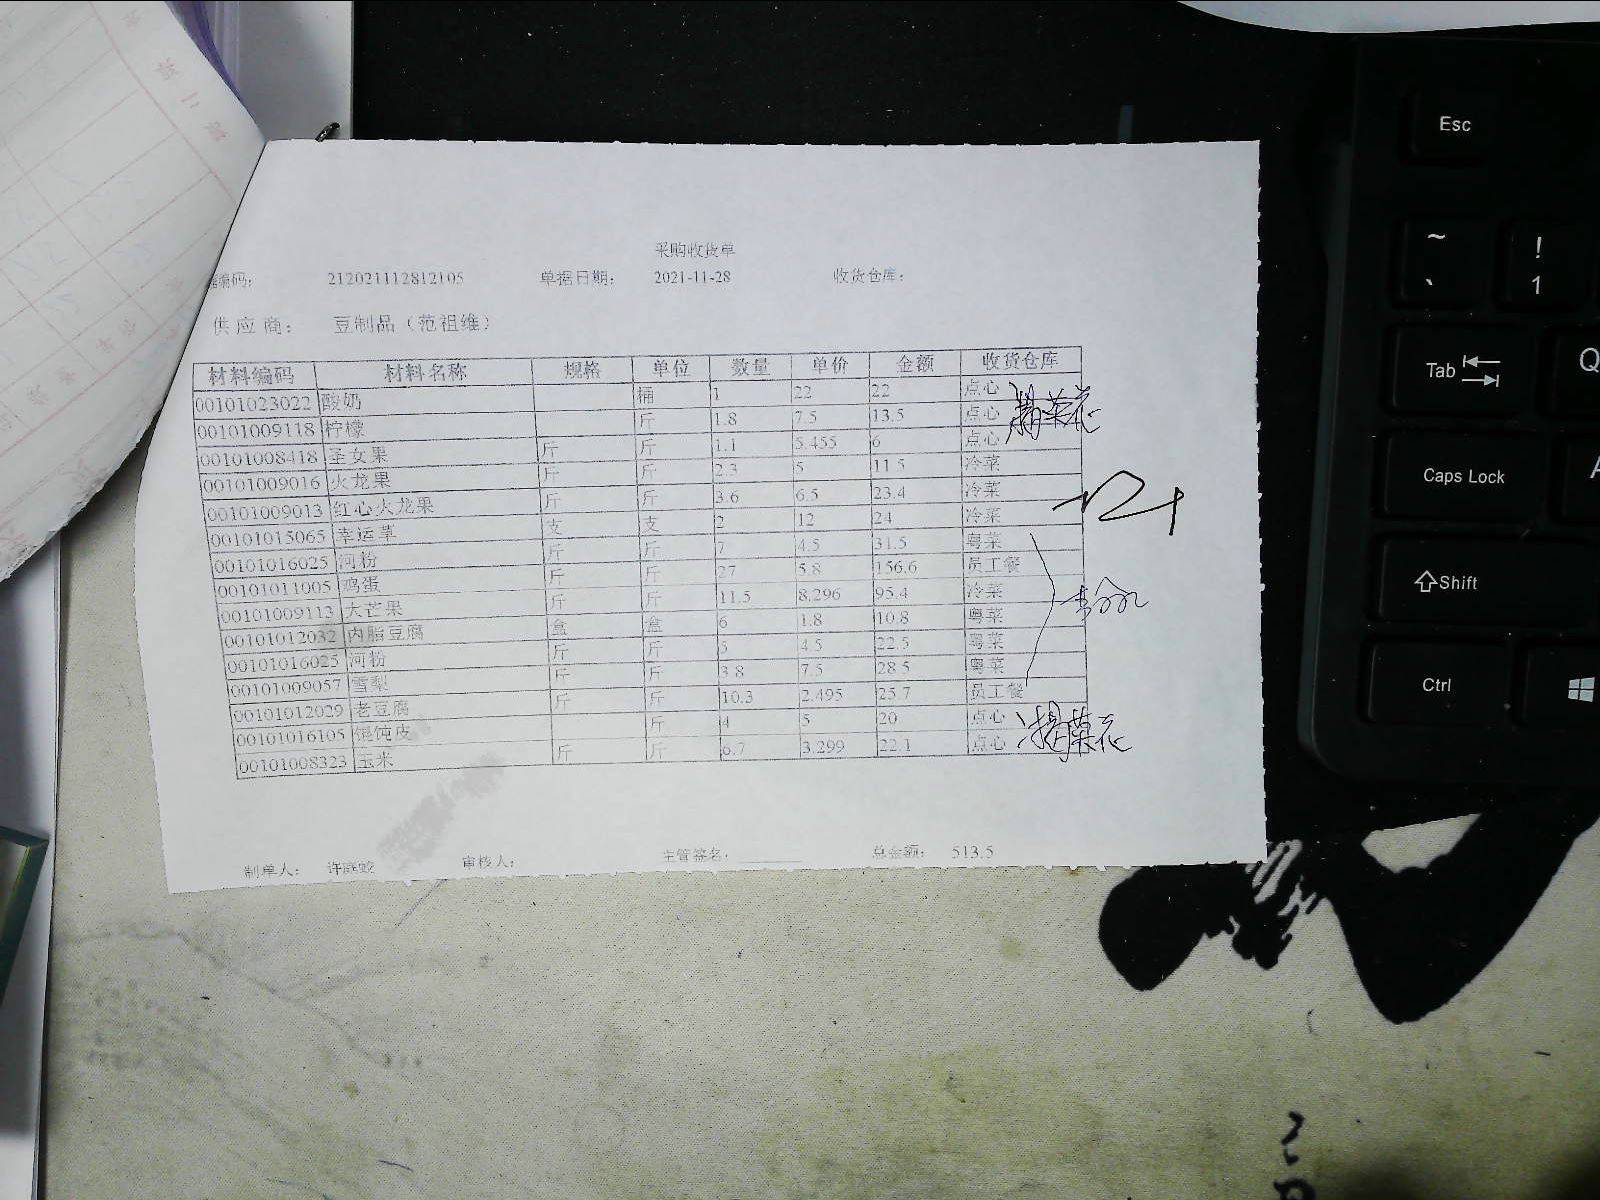 采购收货单
编码： 212021112812105 单据日期： 2021-11-28 收货仓库：
供应商： 豆制品（范祖维）
材料编码 材料名称 规格 单位 数量 单价 金额 收货仓库
00101023022 酸奶 桶 1 22 22 点心
00101009118 柠檬 斤 1.8 7.5 13.5 点心
00101008418 圣女果 斤 斤 1.1 5.455 6 点心
00101009016 火龙果 斤 斤 2.3 5 11.5 冷菜
00101009013 红心火龙果 斤 斤 3.6 6.5 23.4 冷菜
00101015065 幸运草 支 支 2 12 24 冷菜
00101016025 河粉 斤 斤 7 4.5 31.5 粤菜
00101011005 鸡蛋 斤 斤 27 5.8 156.6 员工餐
00101009113 大芒果 斤 斤 11.5 8.296 95.4 冷菜
00101012032 内脂豆腐 盒 盒 6 1.8 10.8 粤菜
00101016025 河粉 斤 斤 5 4.5 22.5 粤菜
00101009057 雪梨 斤 斤 3.8 7.5 28.5 粤菜
00101012029 老豆腐 斤 斤 10.3 2.495 25.7 员工餐
00101016105 馄饨皮 斤 4 5 20 点心
00101008323 玉米 斤 斤 6.7 3.299 22.1 点心
制单人： 许庭蛟 审核人： 主管签名： 总金额： 513.5
Esc
~ `
! 1
Tab
Q
Caps Lock
A
Shift
Ctrl